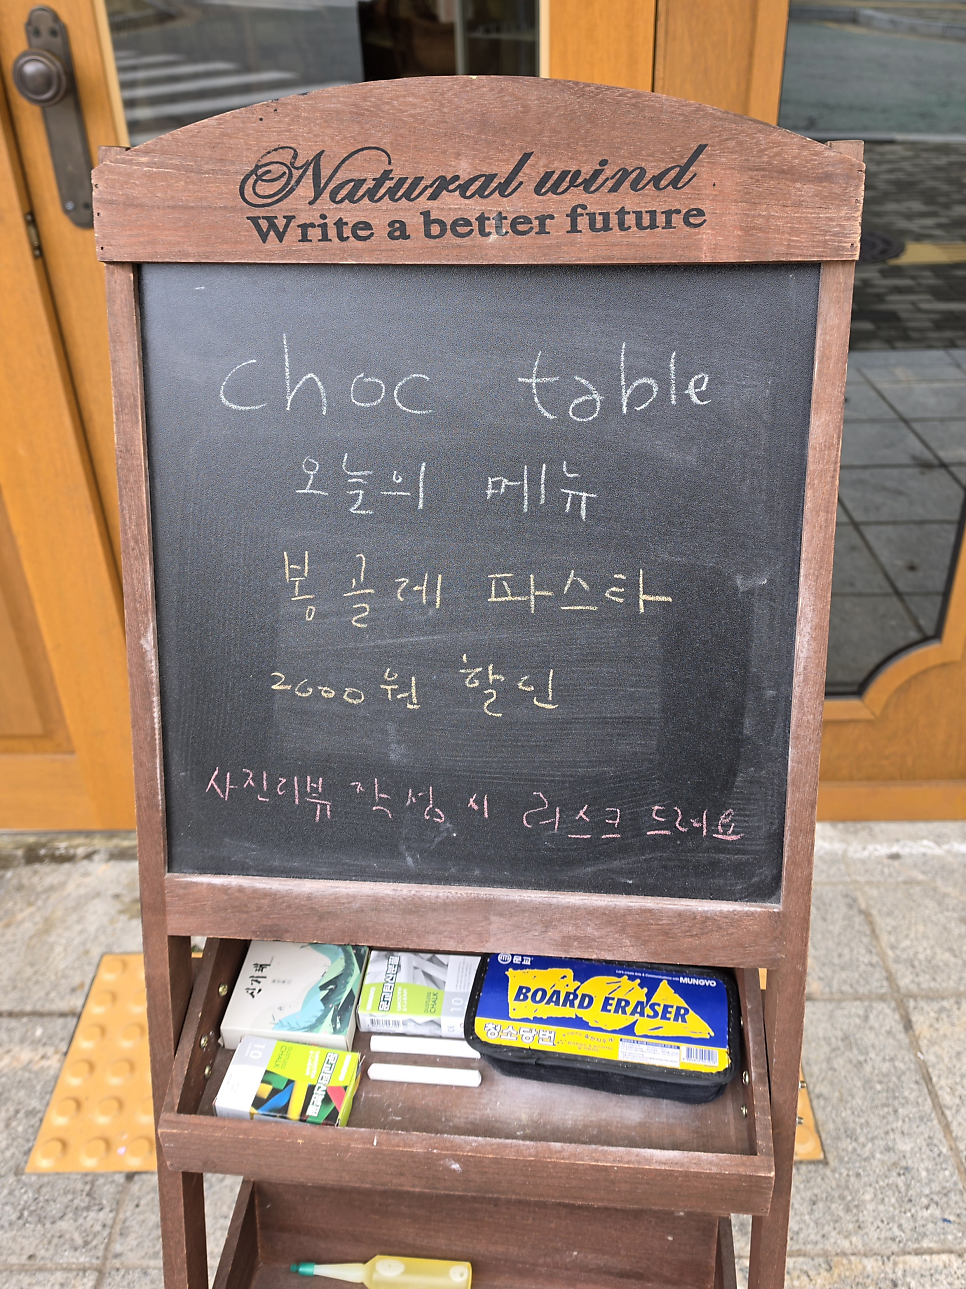 Natural wind
Write a better future
choc table
오늘의 메뉴
봉골레 파스타
2000원 할인
사진리뷰 작성 시 러스크 드려요
문교
MUNGYO
BOARD ERASER
CHALK
10
10